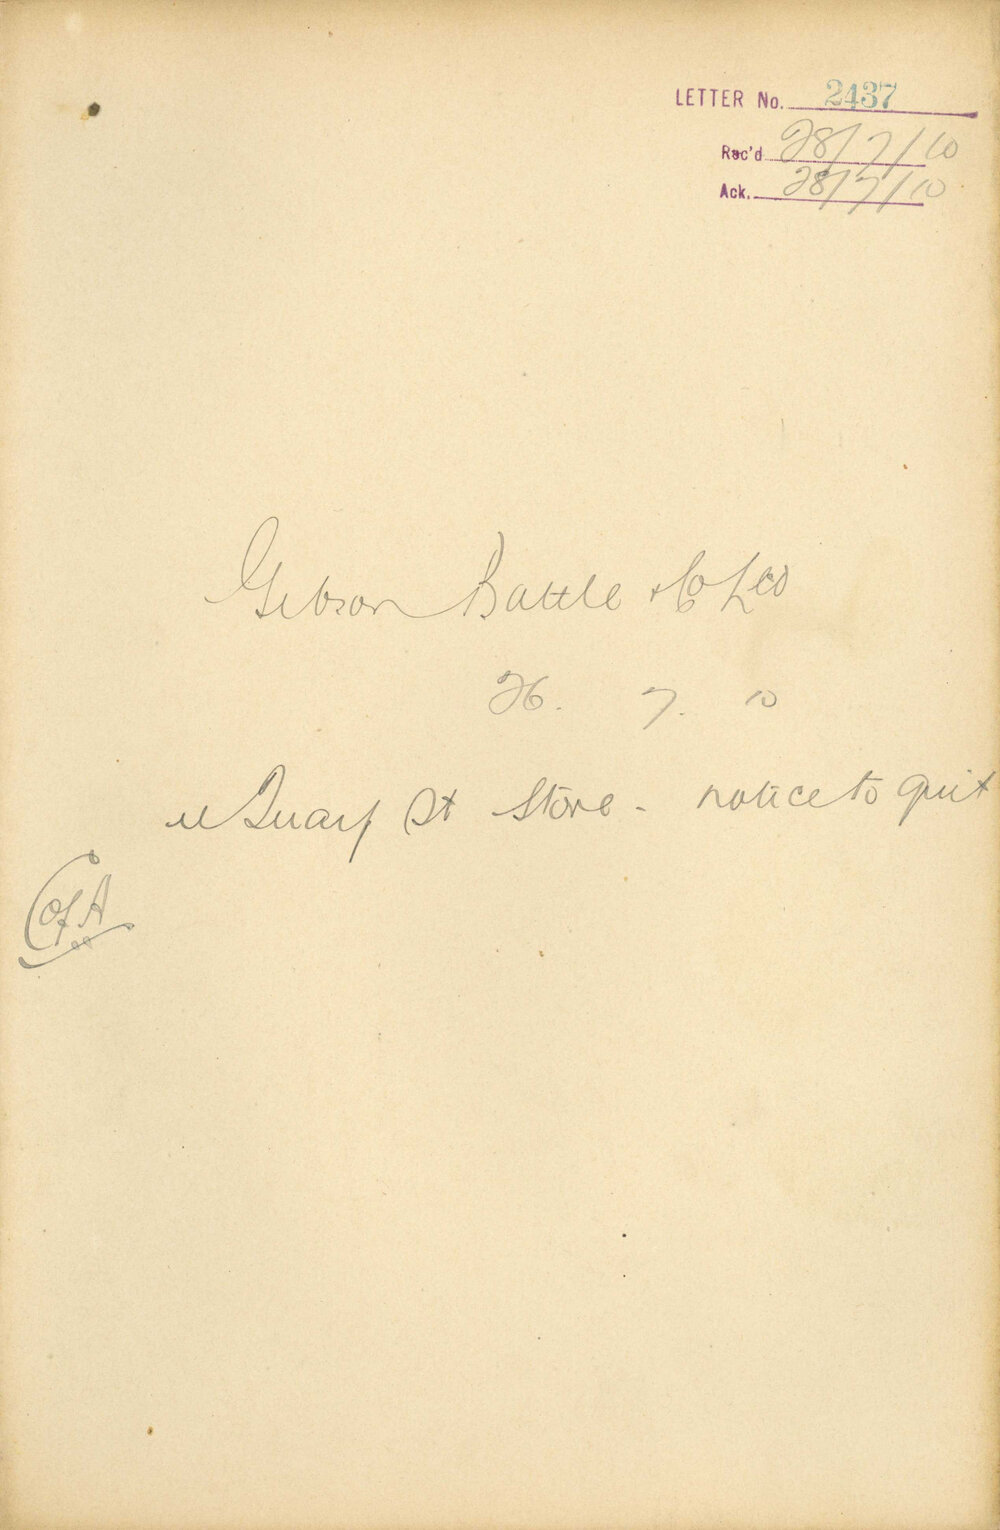 LETTER No. 2437
Rec'd 28/7/10
Ack. 28/7/10
Gibson Battle & Co Ltd
26. 7. 10
Quay St Store - notice to quit
C of A